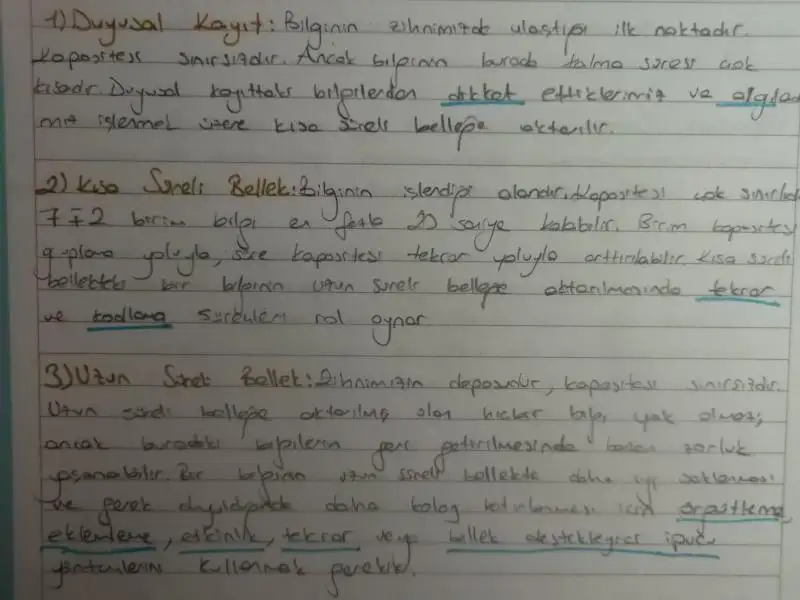 1) Duyusal Kayıt: Bilginin zihnimizde ulaştığı ilk noktadır.
Kapasitesi sınırsızdır. Ancak bilginin burada kalma süresi çok
kısadır. Duyusal kayıttaki bilgilerden dikkat ettiklerimiz ve algıladı
mız işlenmek üzere kısa süreli belleğe aktarılır.
2) Kısa Süreli Bellek: Bilginin işlendiği alandır. Kapasitesi çok sınırlıdır
7∓2 birim bilgi en fazla 20 saniye kalabilir. Birim kapasitesi
gruplama yoluyla, süre kapasitesi tekrar yoluyla arttırılabilir. Kısa süreli
bellekteki bir bilginin uzun süreli belleğe aktarılmasında tekrar
ve kodlama süreçleri rol oynar
3) Uzun Süreli Bellek: Zihnimizin deposudur, kapasitesi sınırsızdır.
Uzun süreli belleğe aktarılmış olan hiçbir bilgi yok olmaz;
ancak buradaki bilgilerin geri getirilmesinde bazen zorluk
yaşanabilir. Bir bilginin uzun süreli bellekte daha iyi saklanması
ve gerek duyulduğunda daha kolay hatırlanması için örgütleme,
eklemleme, etkinlik, tekrar veya bellek destekleyici ipucu
yöntemlerini kullanmak gerekir.